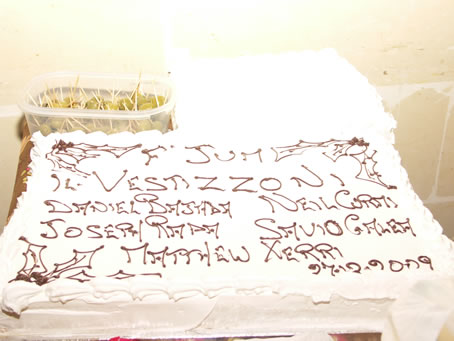 F' JUM
IL-VESTIZZONI
DANIEL BAJADA NEIL CURMI
JOSEPH RAPA SAVIO GALEA
MATTHEW XERRI
27.12.2009